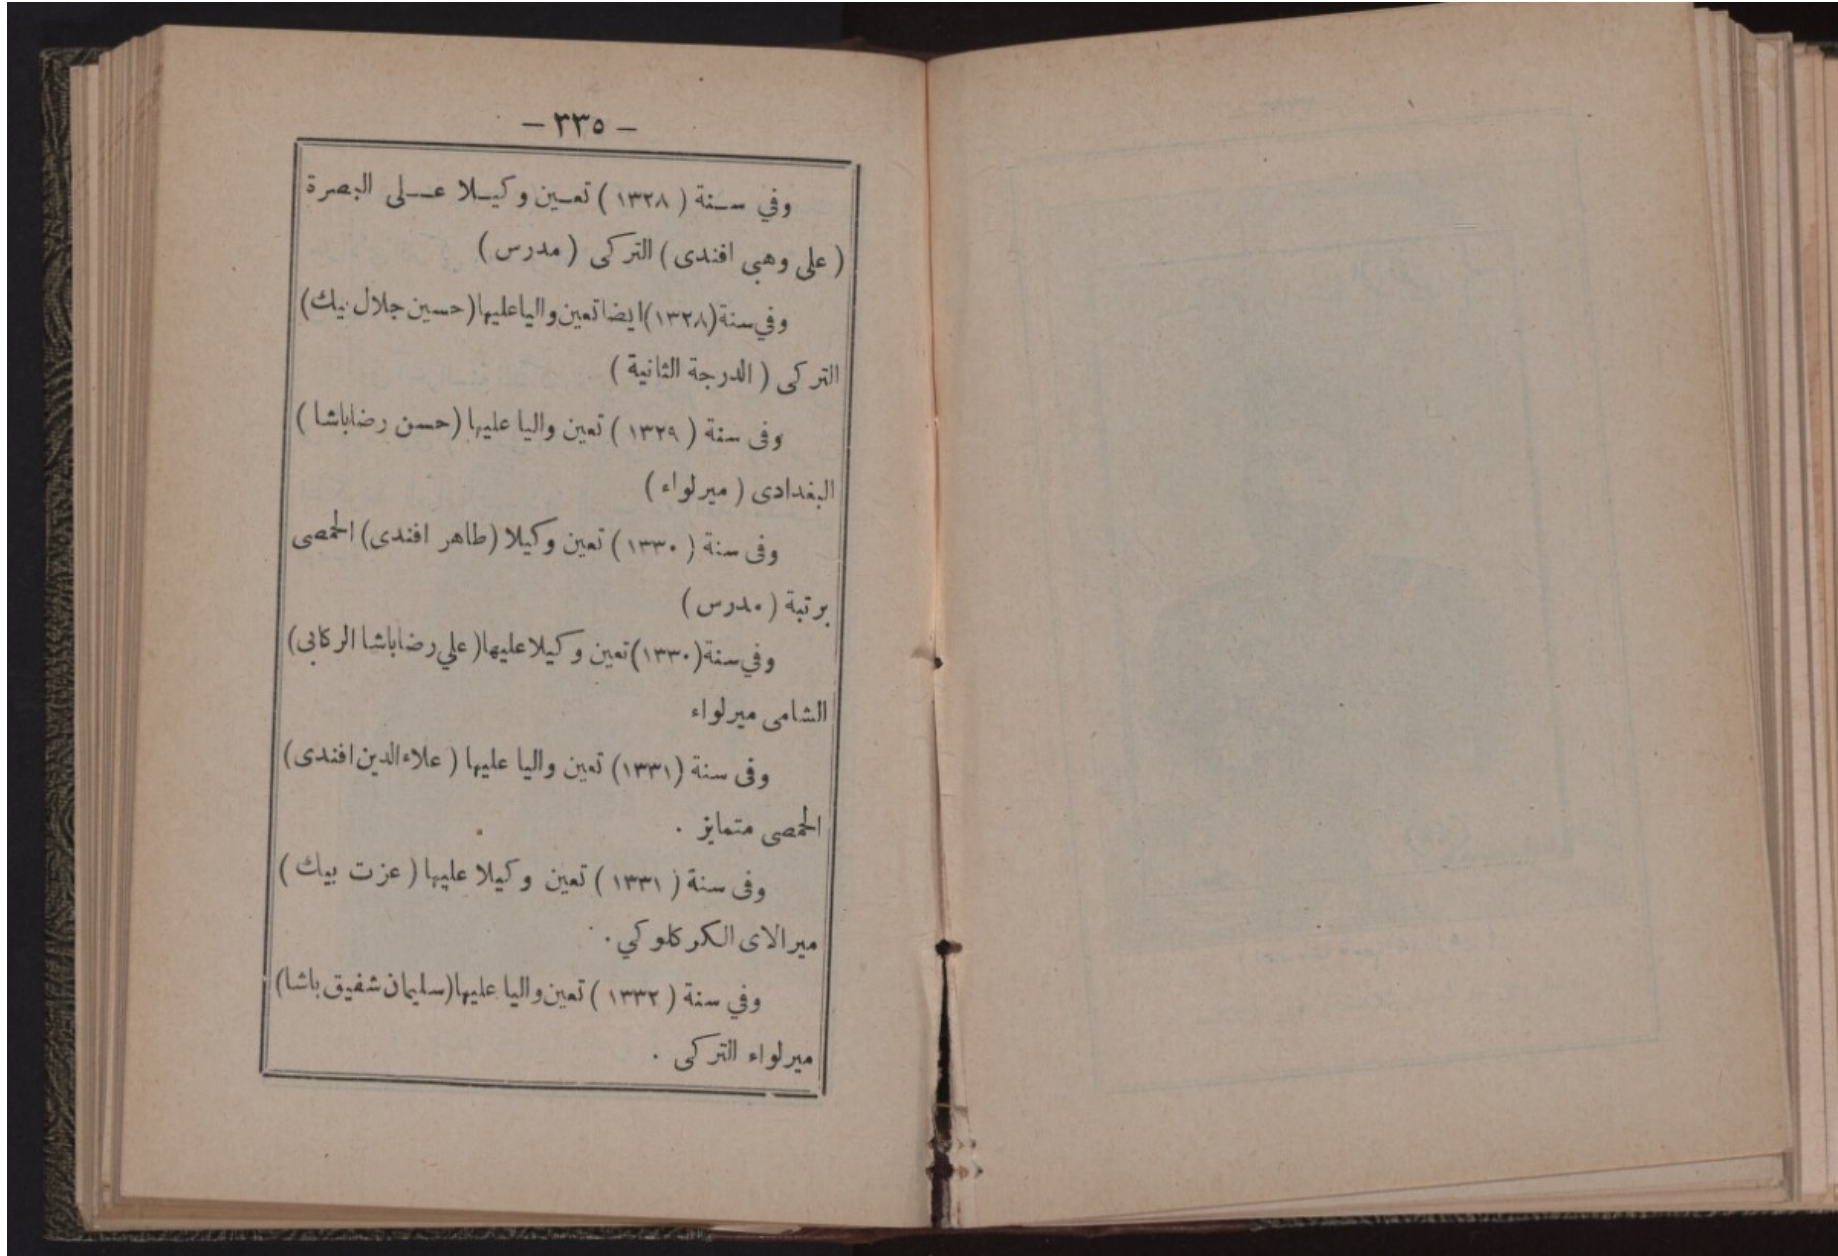 — ٣٣٥ —
وفي سنة ( ١٣٢٨ ) تعين وكيلا على البصرة
( على وهبي افندى ) التركى ( مدرس )
وفي سنة (١٣٢٨) ايضا تعين واليا عليها (حسين جلال بيك)
التركى ( الدرجة الثانية )
وفى سنة ( ١٣٢٩ ) تعين واليا عليها (حسن رضا باشا )
البغدادى ( ميرلواء )
وفى سنة ( ١٣٣٠ ) تعين وكيلا (طاهر افندى) الحمصى
برتبة ( مدرس )
وفي سنة (١٣٣٠) تعين وكيلا عليها ( علي رضا باشا الركابى)
الشامى ميرلواء
وفى سنة (١٣٣١) تعين واليا عليها ( علاء الدين افندى)
الحمصى متمايز .
وفى سنة ( ١٣٣١ ) تعين وكيلا عليها ( عزت بيك )
ميرالاى الكركلوكي .
وفي سنة ( ١٣٣٢ ) تعين واليا عليها (سليمان شفيق باشا)
ميرلواء التركى .